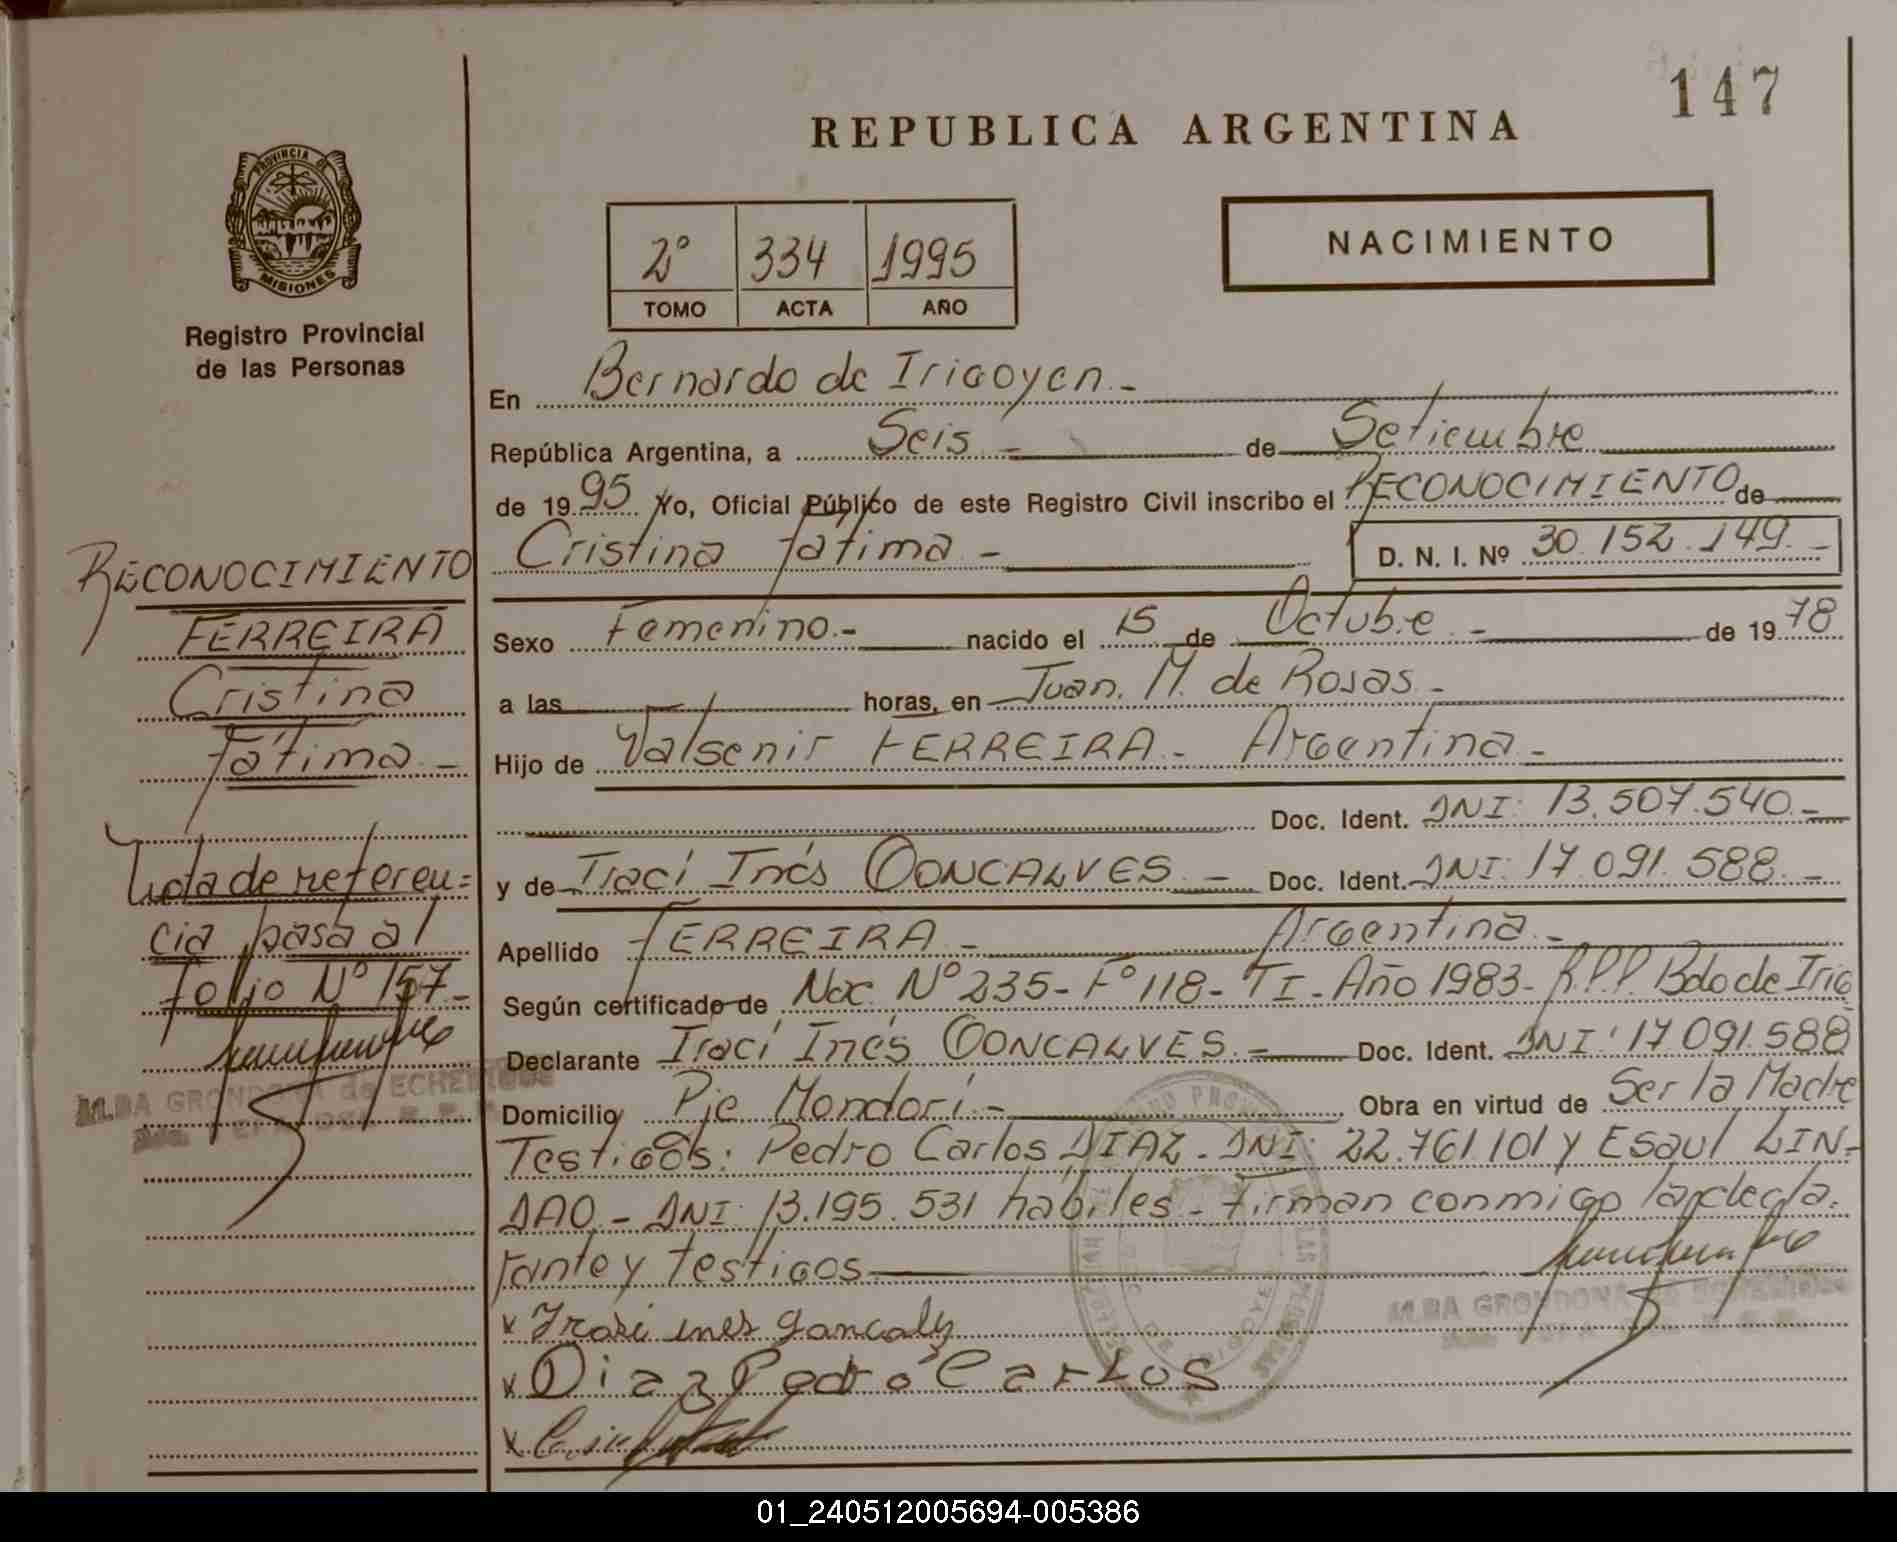 147
REPUBLICA ARGENTINA
PROVINCIA DE
MISIONES
Registro Provincial
de las Personas
2º 334 1995
TOMO ACTA AÑO
NACIMIENTO
En Bernardo de Irigoyen.-
República Argentina, a Seis.- de Setiembre
de 1995 Yo, Oficial Público de este Registro Civil inscribo el RECONOCIMIENTO de
Cristina Fatima - D. N. I. Nº 30.152.149.-
Sexo Femenino.- nacido el 15 de Octubre.- de 1978
a las horas, en Juan. M. de Rosas.-
Hijo de Valsenir FERREIRA.- Argentina.-
Doc. Ident. DNI: 13.507.540.-
y de Iraci Inés GONCALVES.- Doc. Ident. DNI: 17.091.588.-
Apellido FERREIRA.- Argentina.-
Según certificado de Nac. Nº 235- Fº 118- T I- Año 1983- R.P.P. Bdo de Irig
Declarante Iraci Inés GONCALVES.- Doc. Ident. DNI: 17.091.588
Domicilio Pje Mondori.- Obra en virtud de Ser la Madre
Testigos: Pedro Carlos DIAZ- DNI: 22.761.101 y Esaul LIN-
DAO- DNI: 13.195.531 habiles- Firman conmigo la decla-
rante y testigos
x Irasi ines gancalz
x Diaz Pedro Carlos
x
RECONOCIMIENTO
FERREIRA
Cristina
Fátima -
Nota de referen=
cia pasa al
folio Nº 157-
ALBA GRONDONA de ECHEVERRIE
ALBA GRONDONA